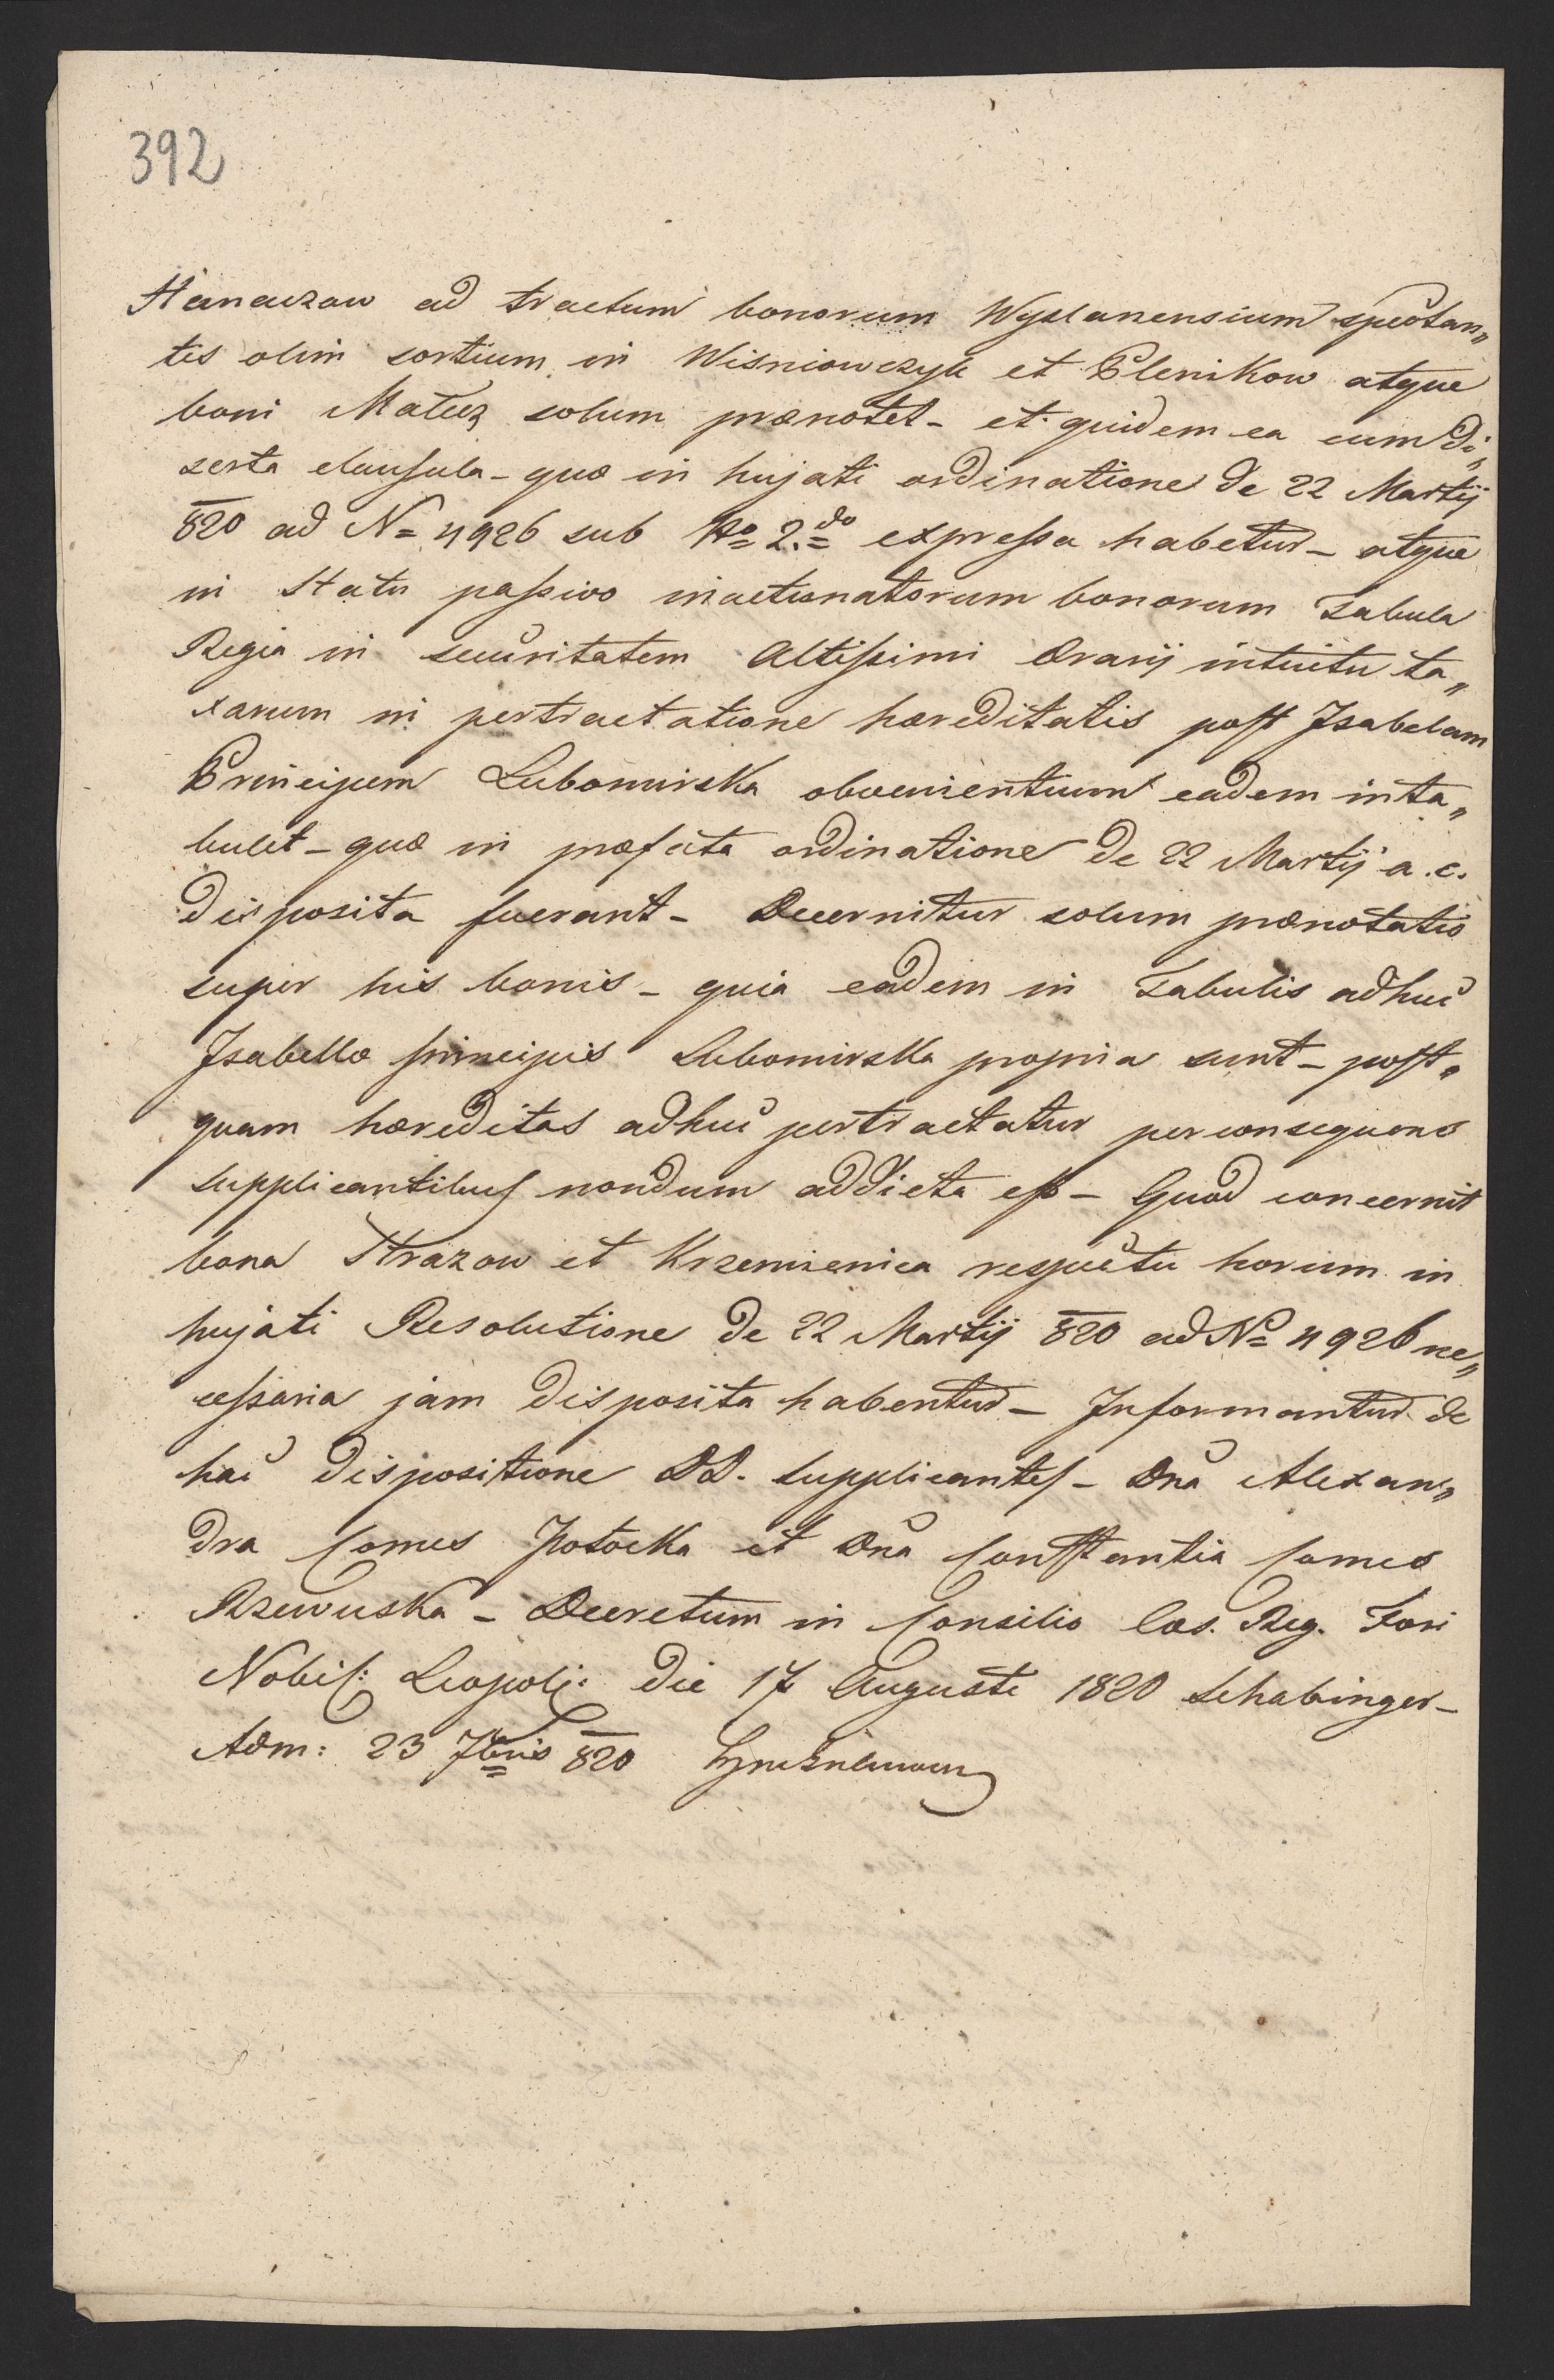 392
Hanaczow ad tractum bonorum Wyzlanensium spectan„
tis olim sortium in Wisniowczyk et Plenikow atque
boni Matuz solum prænotet – et quidem ea cum di„
serta clausula – quæ in hujati ordinatione de 22 Martij
820 ad N= 4926 sub No 2.do expressa habetur – atque
in Statu passivo inactionatorum bonorum Tabula
Regia in securitatem Altissimi Ærarij intuitu ta„
xarum in pertractatione hæreditatis post Isabelam
Principem Lubomirska obvenientium eadem inta„
bulet – quæ in præfata ordinatione de 22 Martij a. c.
disposita fuerant – Decernitur solum prænotatio
super his bonis – quia eadem in Tabulis adhuc
Isabellæ principis Lubomirska propria sunt – post„
quam hæreditas adhuc pertractatur per consequens
supplicantibus nondum addicta est – Quod concernit
bona Strazow et Krzemienica respectu horum in
hujati Resolutione de 22 Martij 820 ad N= 4926 ne„
cessaria jam disposita habentur – Informantur de
hac dispositione DD. supplicantes – Dna Alexan„
dra Comes Potocka et Dna Constantia Comes
Rzewuska – Decretum in Consilio Cæs. Reg. Fori
Nobil: Leopol: die 17 Augusti 1820 Schabinger –
Adm: 23 7bris 820